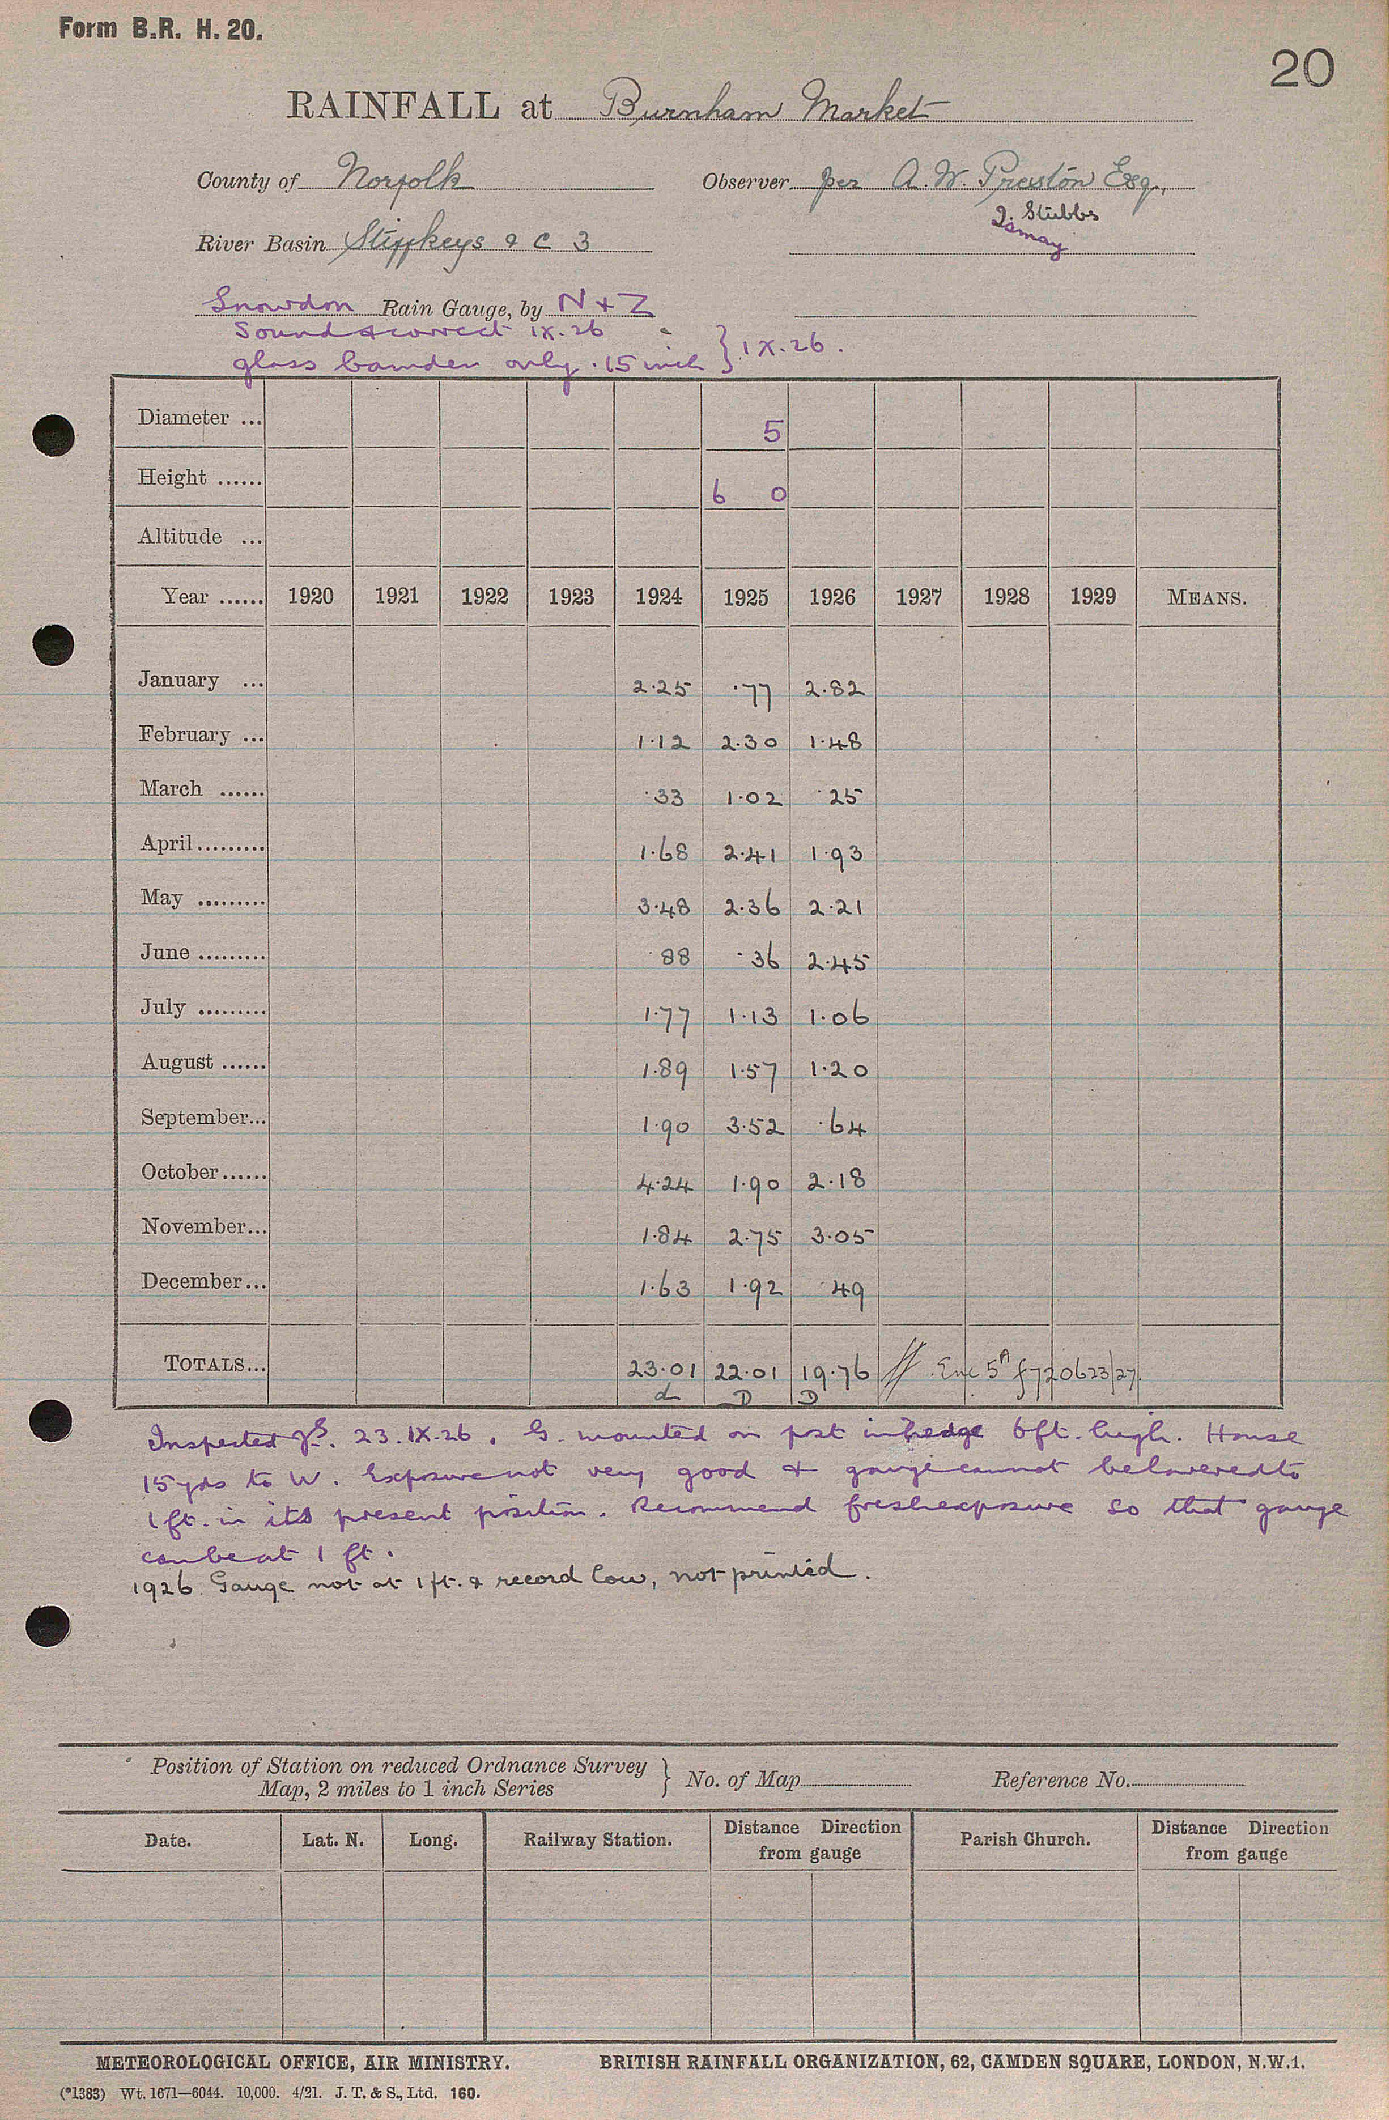 Form B.R. H. 20.
20
RAINFALL at Burnham Market
County of Norfolk Observer per A. W. Preston Esq.,
J. Stubbs
Ismay
River Basin Stiffkeys & C 3
Snowdon Rain Gauge, by N + Z
Sound & correct IX.26
glass camden only .15 inch } IX.26.
Diameter ... 5
Height ...... 6 0
Altitude ...
Year ...... 1920 1921 1922 1923 1924 1925 1926 1927 1928 1929 MEANS.
January ... 2.25 .77 2.82
February ... 1.12 2.30 1.48
March ...... .33 1.02 .25
April ......... 1.68 2.41 1.93
May ......... 3.48 2.36 2.21
June ......... .88 .36 2.45
July ......... 1.77 1.13 1.06
August ...... 1.89 1.57 1.20
September... 1.90 3.52 .64
October...... 4.24 1.90 2.18
November... 1.84 2.75 3.05
December... 1.63 1.92 .49
TOTALS... 23.01 22.01 19.76 Enc 5A f720623/27
d D D
Inspected 23.IX.26. G. mounted on post in hedge 6ft. high. House
15 yds to W. Exposure not very good & gauge cannot be lowered to
1 ft. in its present position. Recommend fresh exposure so that gauge
can be at 1 ft.
1926 Gauge not at 1 ft. & record low, not printed.
Position of Station on reduced Ordnance Survey
Map, 2 miles to 1 inch Series } No. of Map Reference No.
Date. Lat. N. Long. Railway Station. Distance Direction from gauge Parish Church. Distance Direction from gauge
METEOROLOGICAL OFFICE, AIR MINISTRY. BRITISH RAINFALL ORGANIZATION, 62, CAMDEN SQUARE, LONDON, N.W.1.
(*1383) Wt. 1671—6044. 10,000. 4/21. J. T. & S., Ltd. 160.